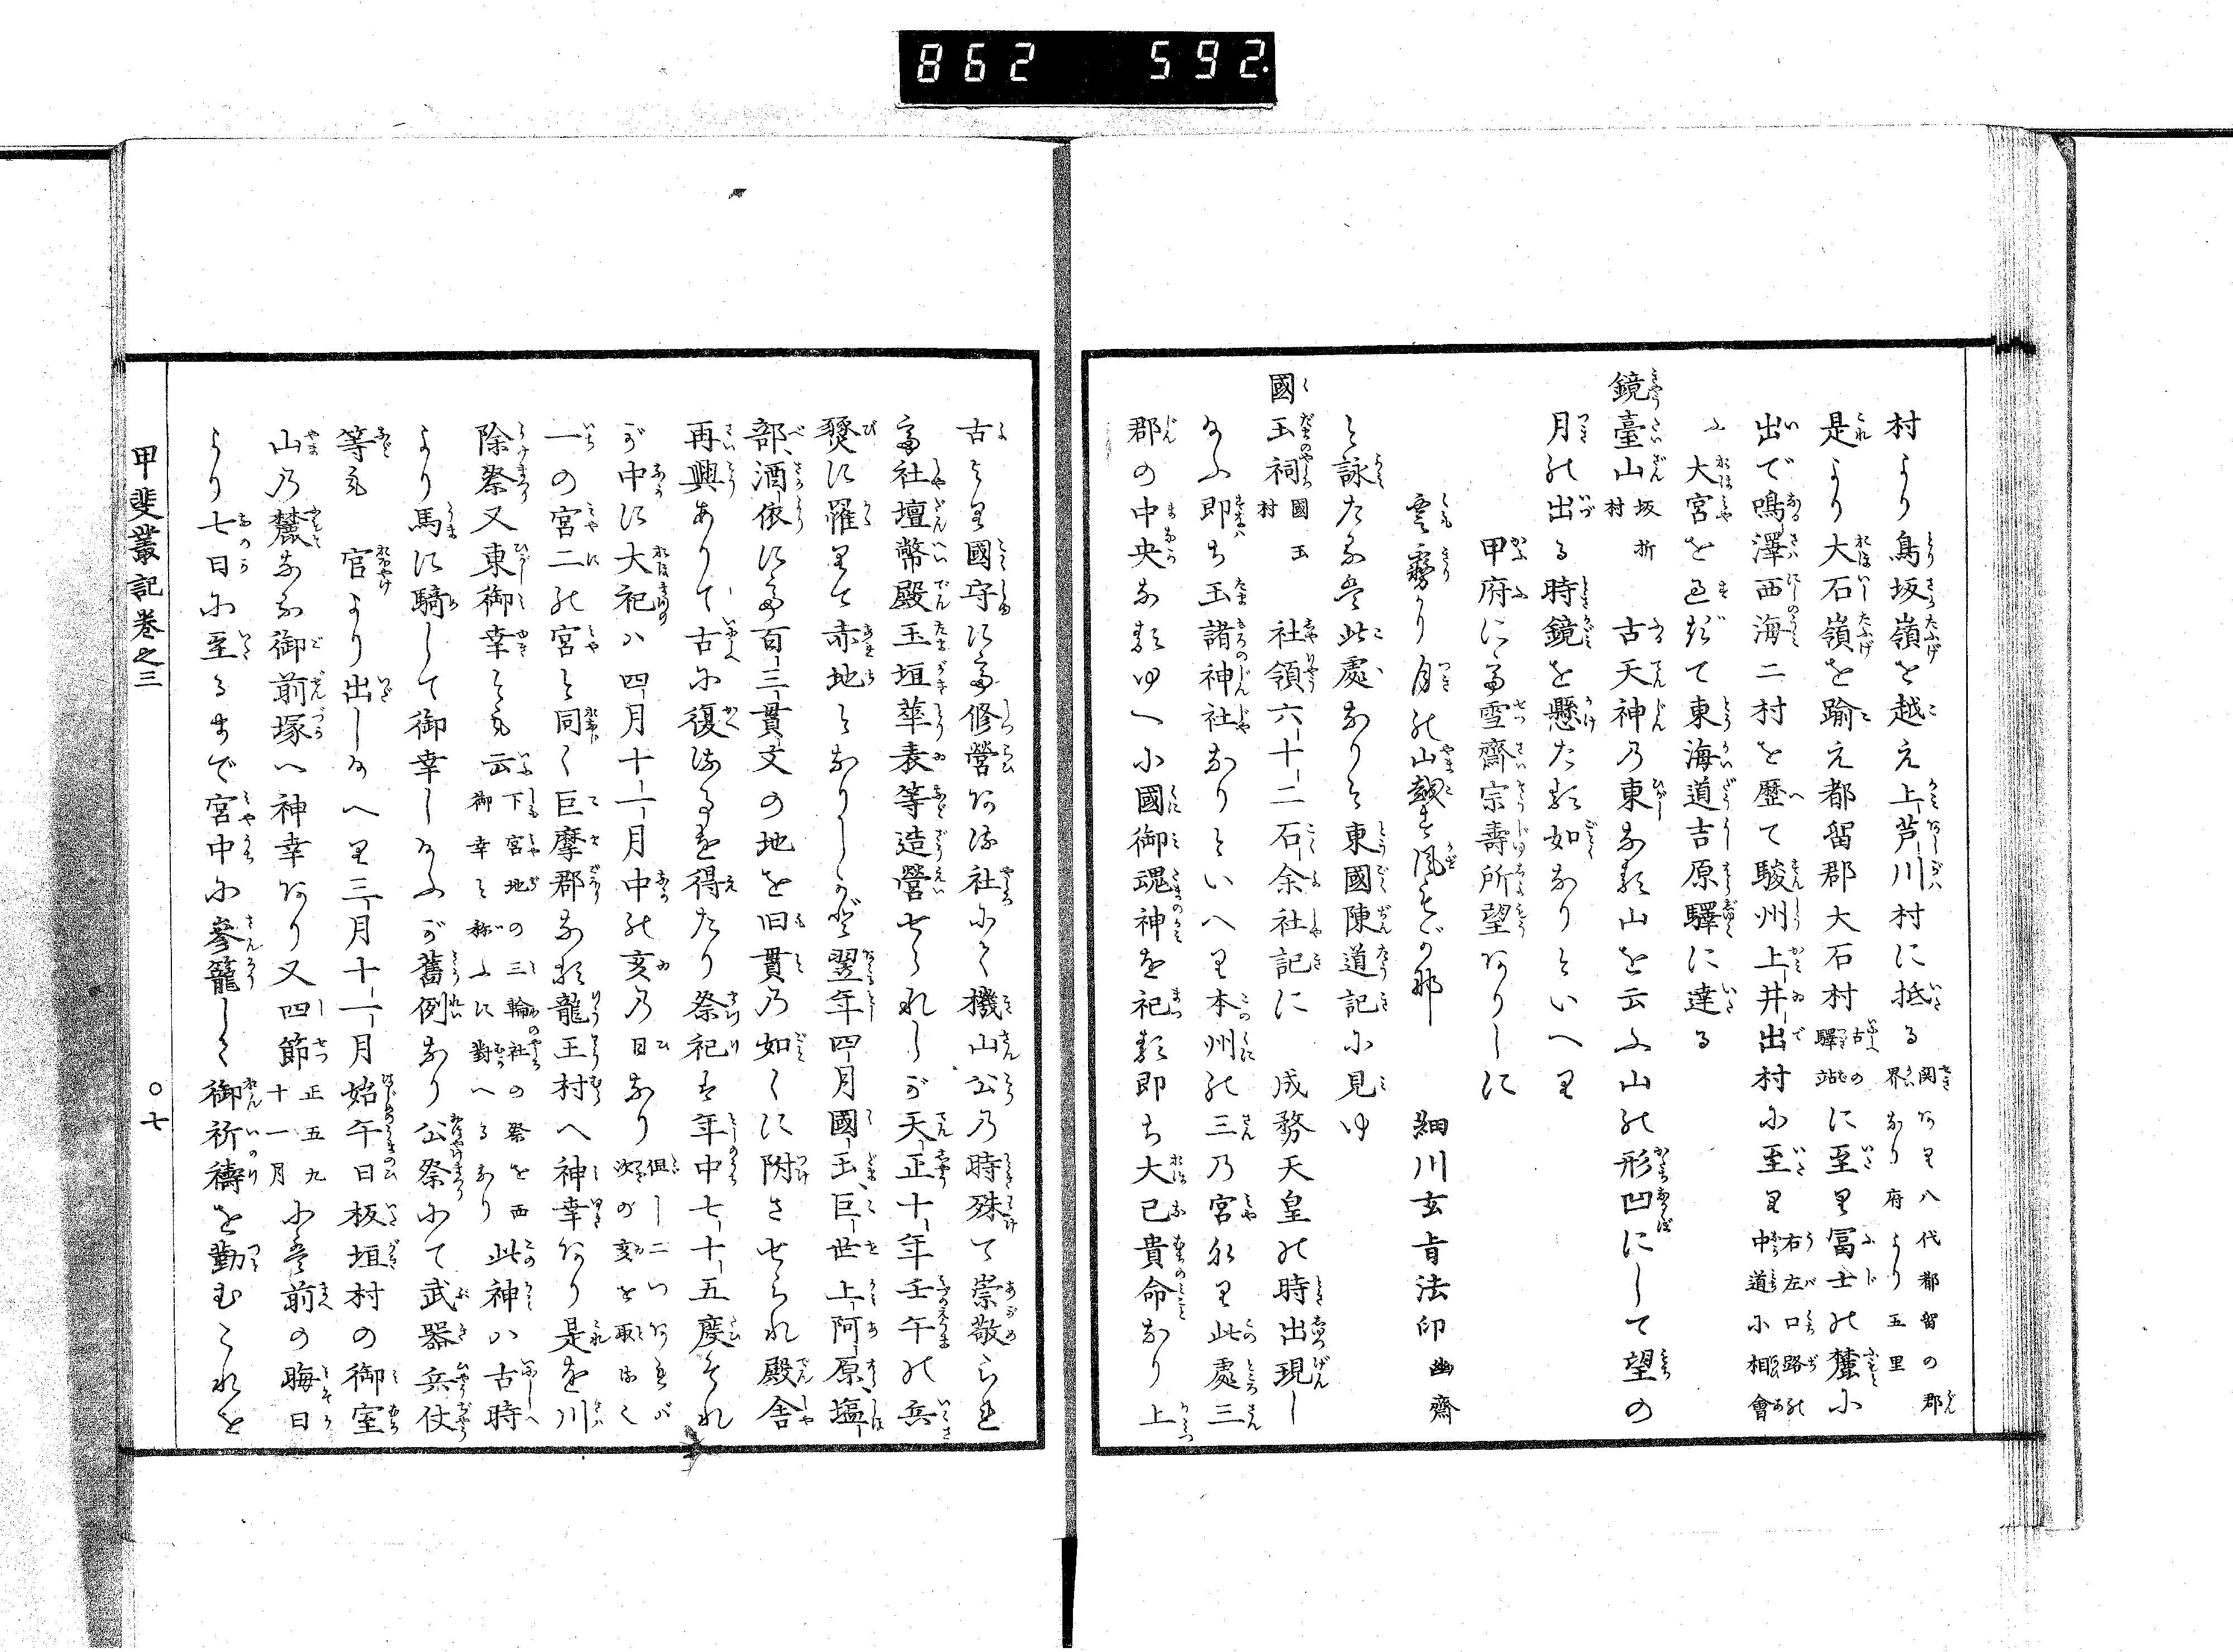 862 592.
村より鳥坂嶺を越え上芦川村に抵る関ありて八代都留の郡界なり府より五里
是より大石嶺を踰え都留郡大石村古の驛站に至り冨士の麓に
出で鳴澤西海二村を歴て駿州上井出村に至り右左口路の中道に相會
ふ大宮を過ぎて東海道吉原驛に達る
鏡臺山坂折村 古天神の東なる山を云ふ山の形凹にして望の
月の出る時鏡を懸たる如なりといへり
甲府にて雪齋宗壽所望ありしに
雲霧り月の山越す風もがな 細川玄旨法印幽齋
と詠たるは此處なりと東國陳道記に見ゆ
國玉祠國玉村 社領六十二石余社記に 成務天皇の時出現し
給ふ即ち玉諸神社なりといへり本州の三の宮なり此處三
郡の中央なるゆへ小國御魂神を祀る即ち大己貴命なり上
古より國守にて修營ある社にて機山公の時殊て崇敬られ
て社壇幣殿玉垣華表等造營せられしが天正十年壬午の兵
燹に羅りて赤地となりしかど翌年四月國玉巨世上阿原塩
部酒依にて百三貫文の地を旧貫の如くに附させられ殿舎
再興ありて古に復するを得たり祭祀は年中七十五度それ
が中に大祀ハ四月十一月中の亥の日なり但し二つあれば次の亥を取用く
一の宮二の宮と同く巨摩郡なる龍王村へ神幸あり是を川
除祭又東御幸とも云下宮地の三輪社の祭を西御幸と称ふに對へるなり此神ハ古時
より馬に騎して御幸し給ふが舊例なり公祭にて武器兵仗
等も 官より出し給へり三月十一月始午日板垣村の御室
山の麓なる御前塚へ神幸あり又四節正五九十一月には前の晦日
より七日に至るまで宮中に參籠して御祈禱を勤むこれを
甲斐叢記巻之三
〇七